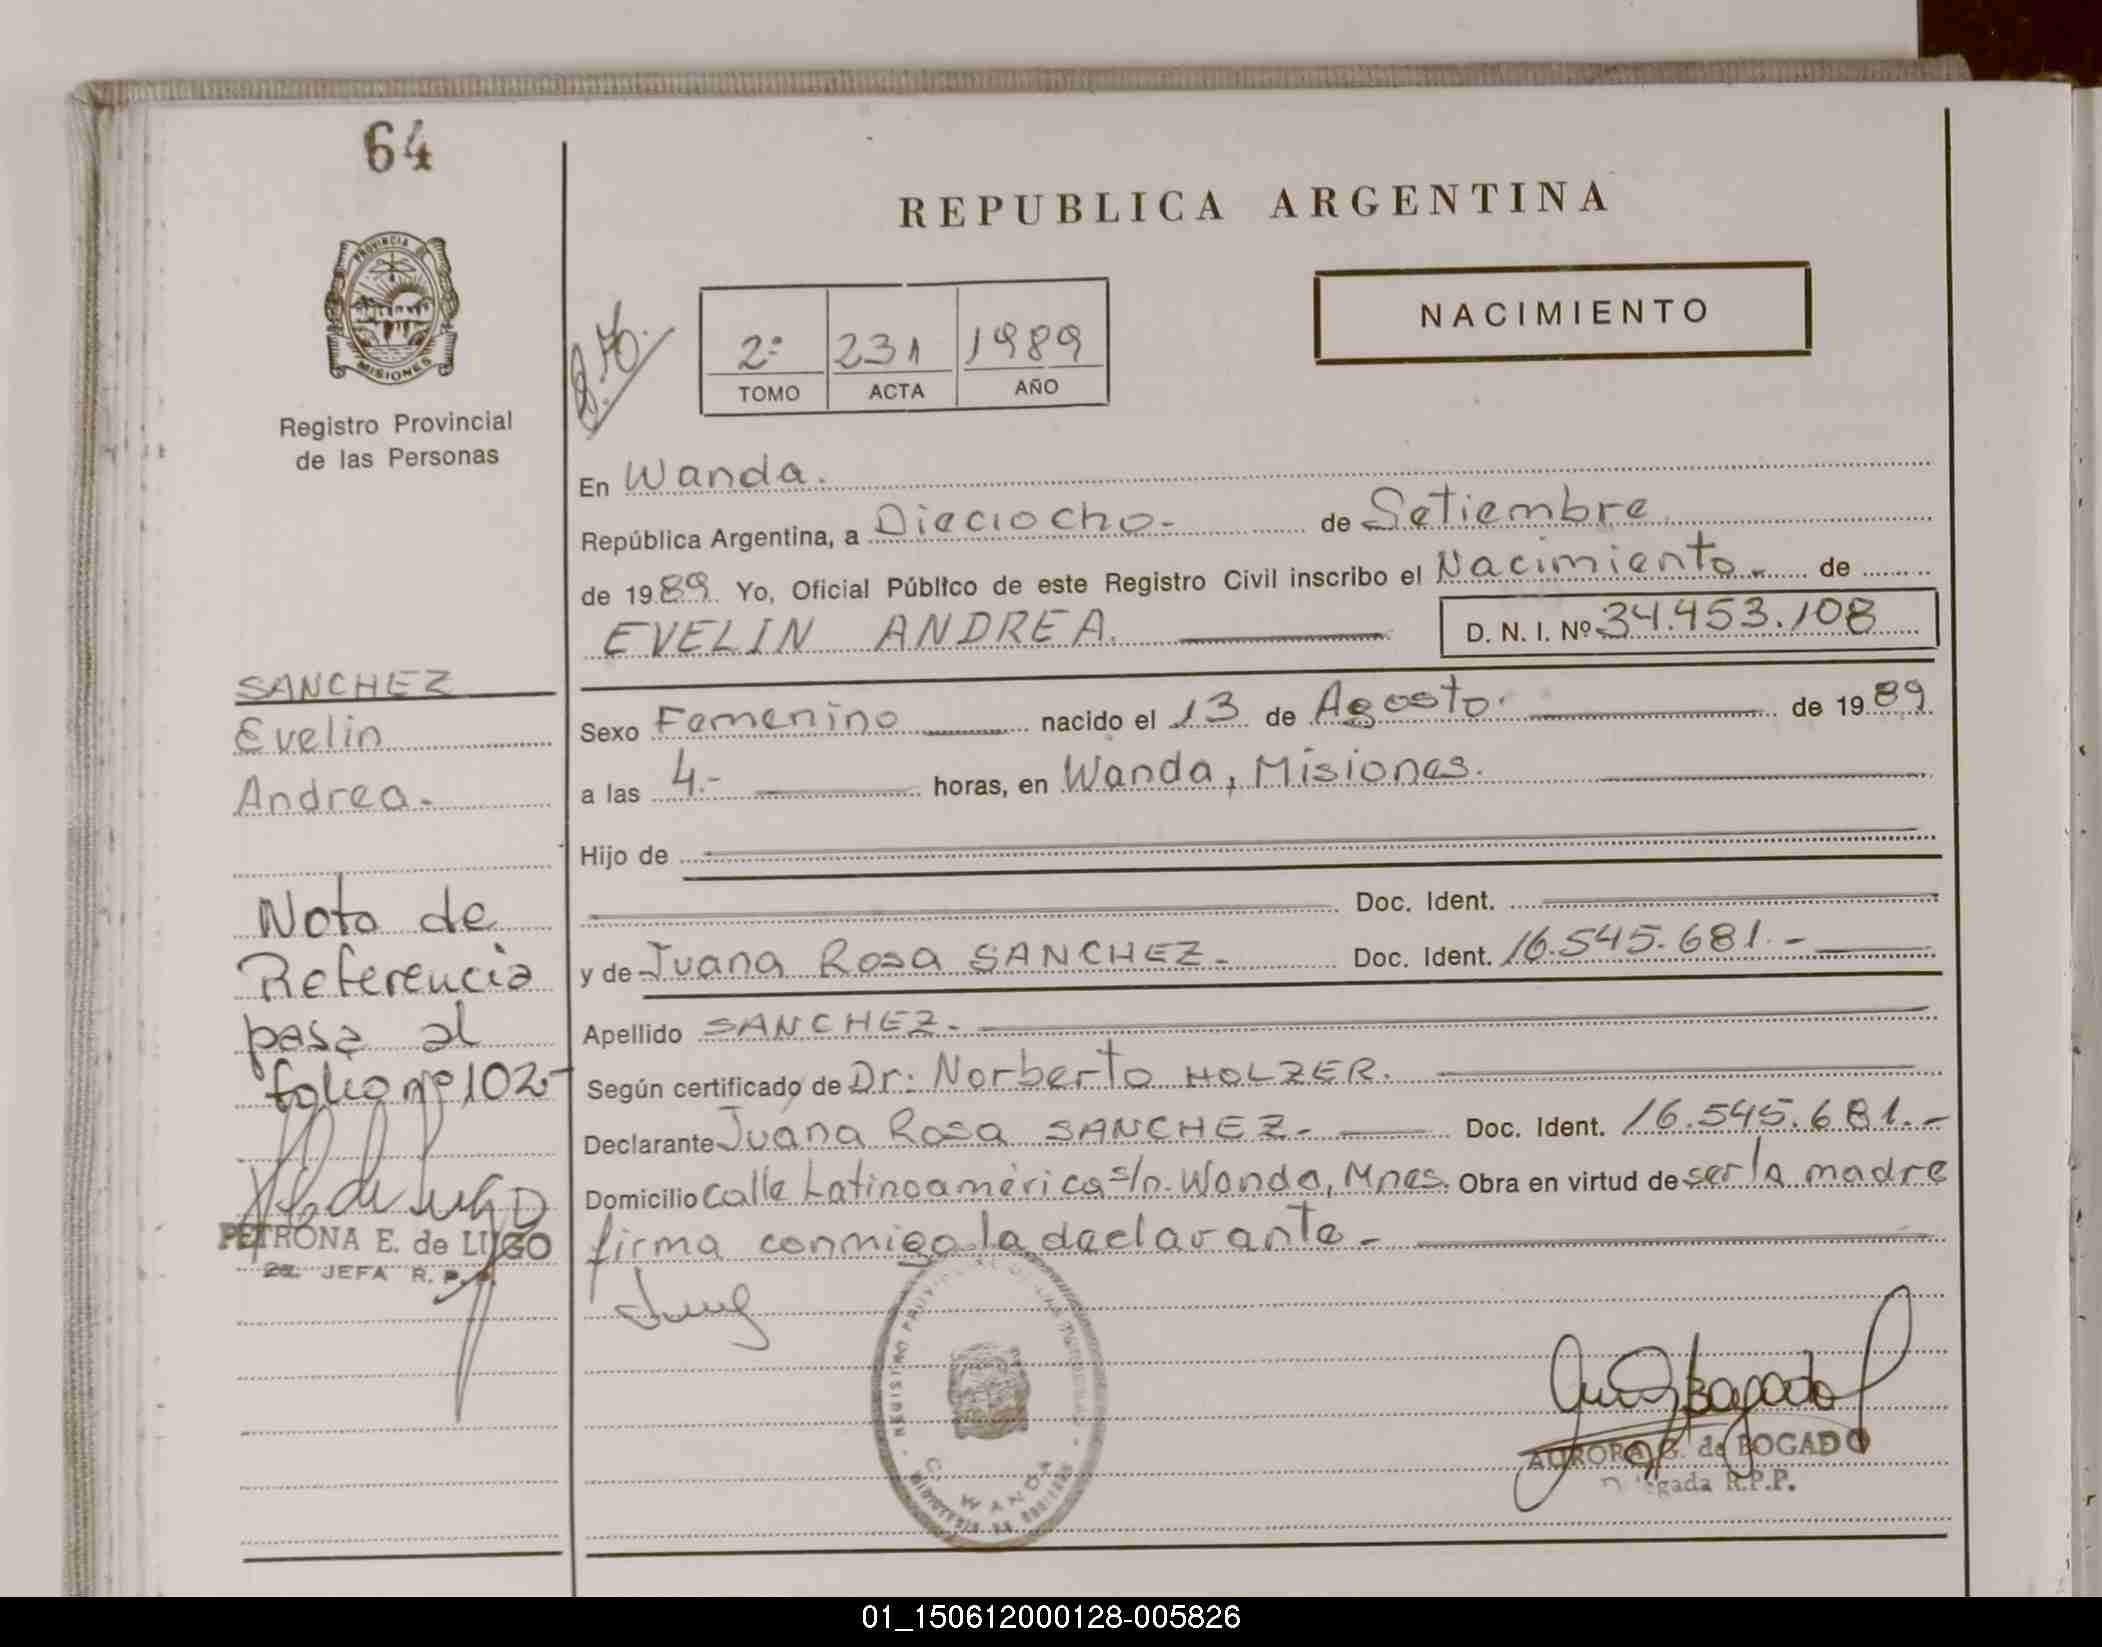 64
REPUBLICA ARGENTINA
PROVINCIA DE
MISIONES
NACIMIENTO
2º 231 1989
TOMO ACTA AÑO
Registro Provincial
de las Personas
En Wanda.
República Argentina, a Dieciocho.- de Setiembre
de 1989 Yo, Oficial Público de este Registro Civil inscribo el Nacimiento.- de
EVELIN ANDREA. D. N. I. Nº 34.453.108
SANCHEZ
Evelin
Andrea.-
Sexo Femenino nacido el 13 de Agosto. de 1989
a las 4.- horas, en Wanda, Misiones.
Hijo de
Doc. Ident.
y de Juana Rosa SANCHEZ.- Doc. Ident. 16.545.681.-
Apellido SANCHEZ.-
Según certificado de Dr: Norberto HOLZER.
Declarante Juana Rosa SANCHEZ.- Doc. Ident. 16.545.681.-
Domicilio Calle Latinoamérica s/n. Wanda, Mnes. Obra en virtud de ser la madre
firma conmigo la declarante.-
Nota de
Referencia
pasa al
folio nº 102-
PETRONA E. de LUGO
2a. JEFA R. P. P.
WANDA
Bogado
AURORA G. de BOGADO
Delegada R.P.P.
01_150612000128-005826